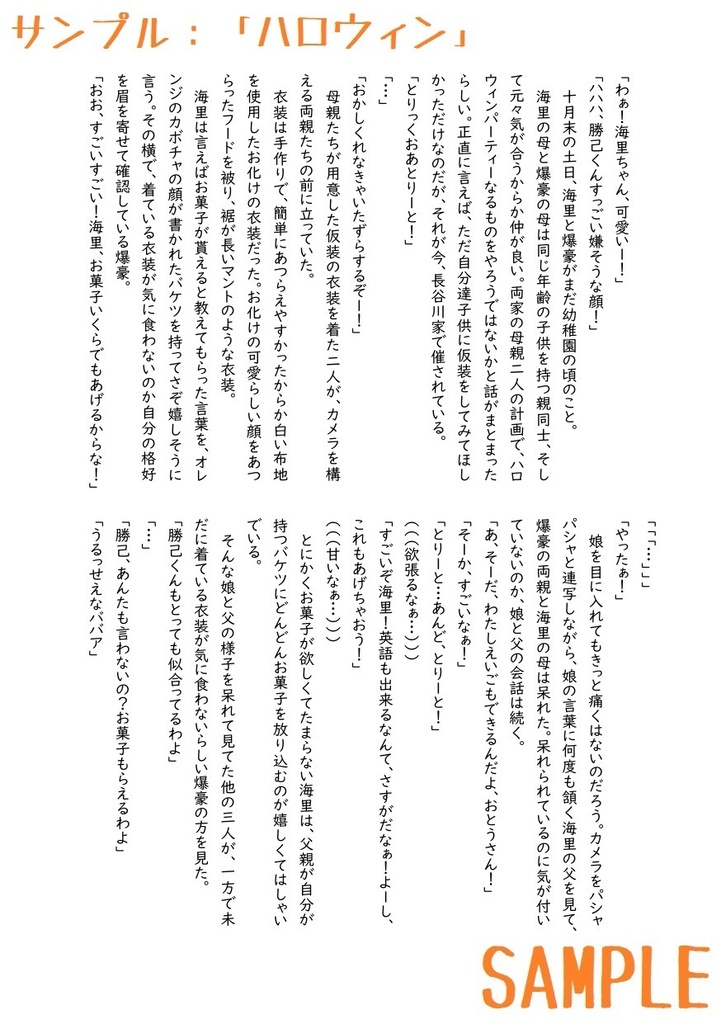 サンプル：「ハロウィン」
「わぁ！海里ちゃん、可愛いー！」
「ハハハ、勝己くんすっごい嫌そうな顔！」
　十月末の土日、海里と爆豪がまだ幼稚園の頃のこと。
　海里の母と爆豪の母は同じ年齢の子供を持つ親同士、そし
て元々気が合うからか仲が良い。両家の母親二人の計画で、ハロ
ウィンパーティーなるものをやろうではないかと話がまとまった
らしい。正直に言えば、ただ自分達子供に仮装をしてみてほし
かっただけなのだが、それが今、長谷川家で催されている。
「とりっくおあとりーと！」
「…」
「おかしくれなきゃいたずらするぞー！」
　母親たちが用意した仮装の衣装を着た二人が、カメラを構
える両親たちの前に立っていた。
　衣装は手作りで、簡単にあつらえやすかったからか白い布地
を使用したお化けの衣装だった。お化けの可愛らしい顔をあつ
らったフードを被り、裾が長いマントのような衣装。
　海里は言えばお菓子が貰えると教えてもらった言葉を、オレ
ンジのカボチャの顔が書かれたバケツを持ってさぞ嬉しそうに
言う。その横で、着ている衣装が気に食わないのか自分の格好
を眉を寄せて確認している爆豪。
「おお、すごいすごい！海里、お菓子いくらでもあげるからな！」
「「「…」」」
「やったぁ！」
　娘を目に入れてもきっと痛くはないのだろう。カメラをパシャ
パシャと連写しながら、娘の言葉に何度も頷く海里の父を見て、
爆豪の両親と海里の母は呆れた。呆れられているのに気が付い
ていないのか、娘と父の会話は続く。
「あ、そーだ、わたしえいごもできるんだよ、おとうさん！」
「そーか、すごいなぁ！」
「とりーと…あんど、とりーと！」
（（（欲張るなぁ…）））
「すごいぞ海里！英語も出来るなんて、さすがだなぁ！よーし、
これもあげちゃおう！」
（（（甘いなぁ…）））
　とにかくお菓子が欲しくてたまらない海里は、父親が自分が
持つバケツにどんどんお菓子を放り込むのが嬉しくてはしゃい
でいる。
　そんな娘と父の様子を呆れて見てた他の三人が、一方で未
だに着ている衣装が気に食わないらしい爆豪の方を見た。
「勝己くんもとっても似合ってるわよ」
「…」
「勝己、あんたも言わないの？お菓子もらえるわよ」
「うるっせえなババア」
SAMPLE